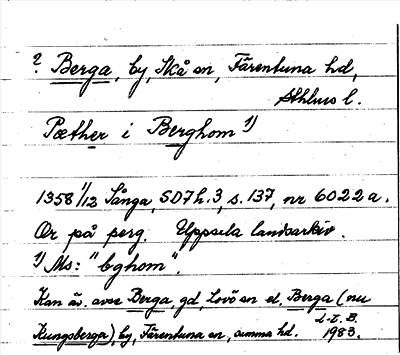 ? Berga, by, Skå sn, Färentuna hd,
Sthlms l.
Pæther i Berghom 1)
1358 1/12 Sånga, SD7h.3, s. 137, nr 6022a.
Or på perg. Uppsala landsarkiv.
1) Ms: "bghom".
Kan äv. avse Berga, gd, Lovö sn el. Berga (nu
L-E. B.
Kungsberga) by, Färentuna sn, samma hd. 1983.